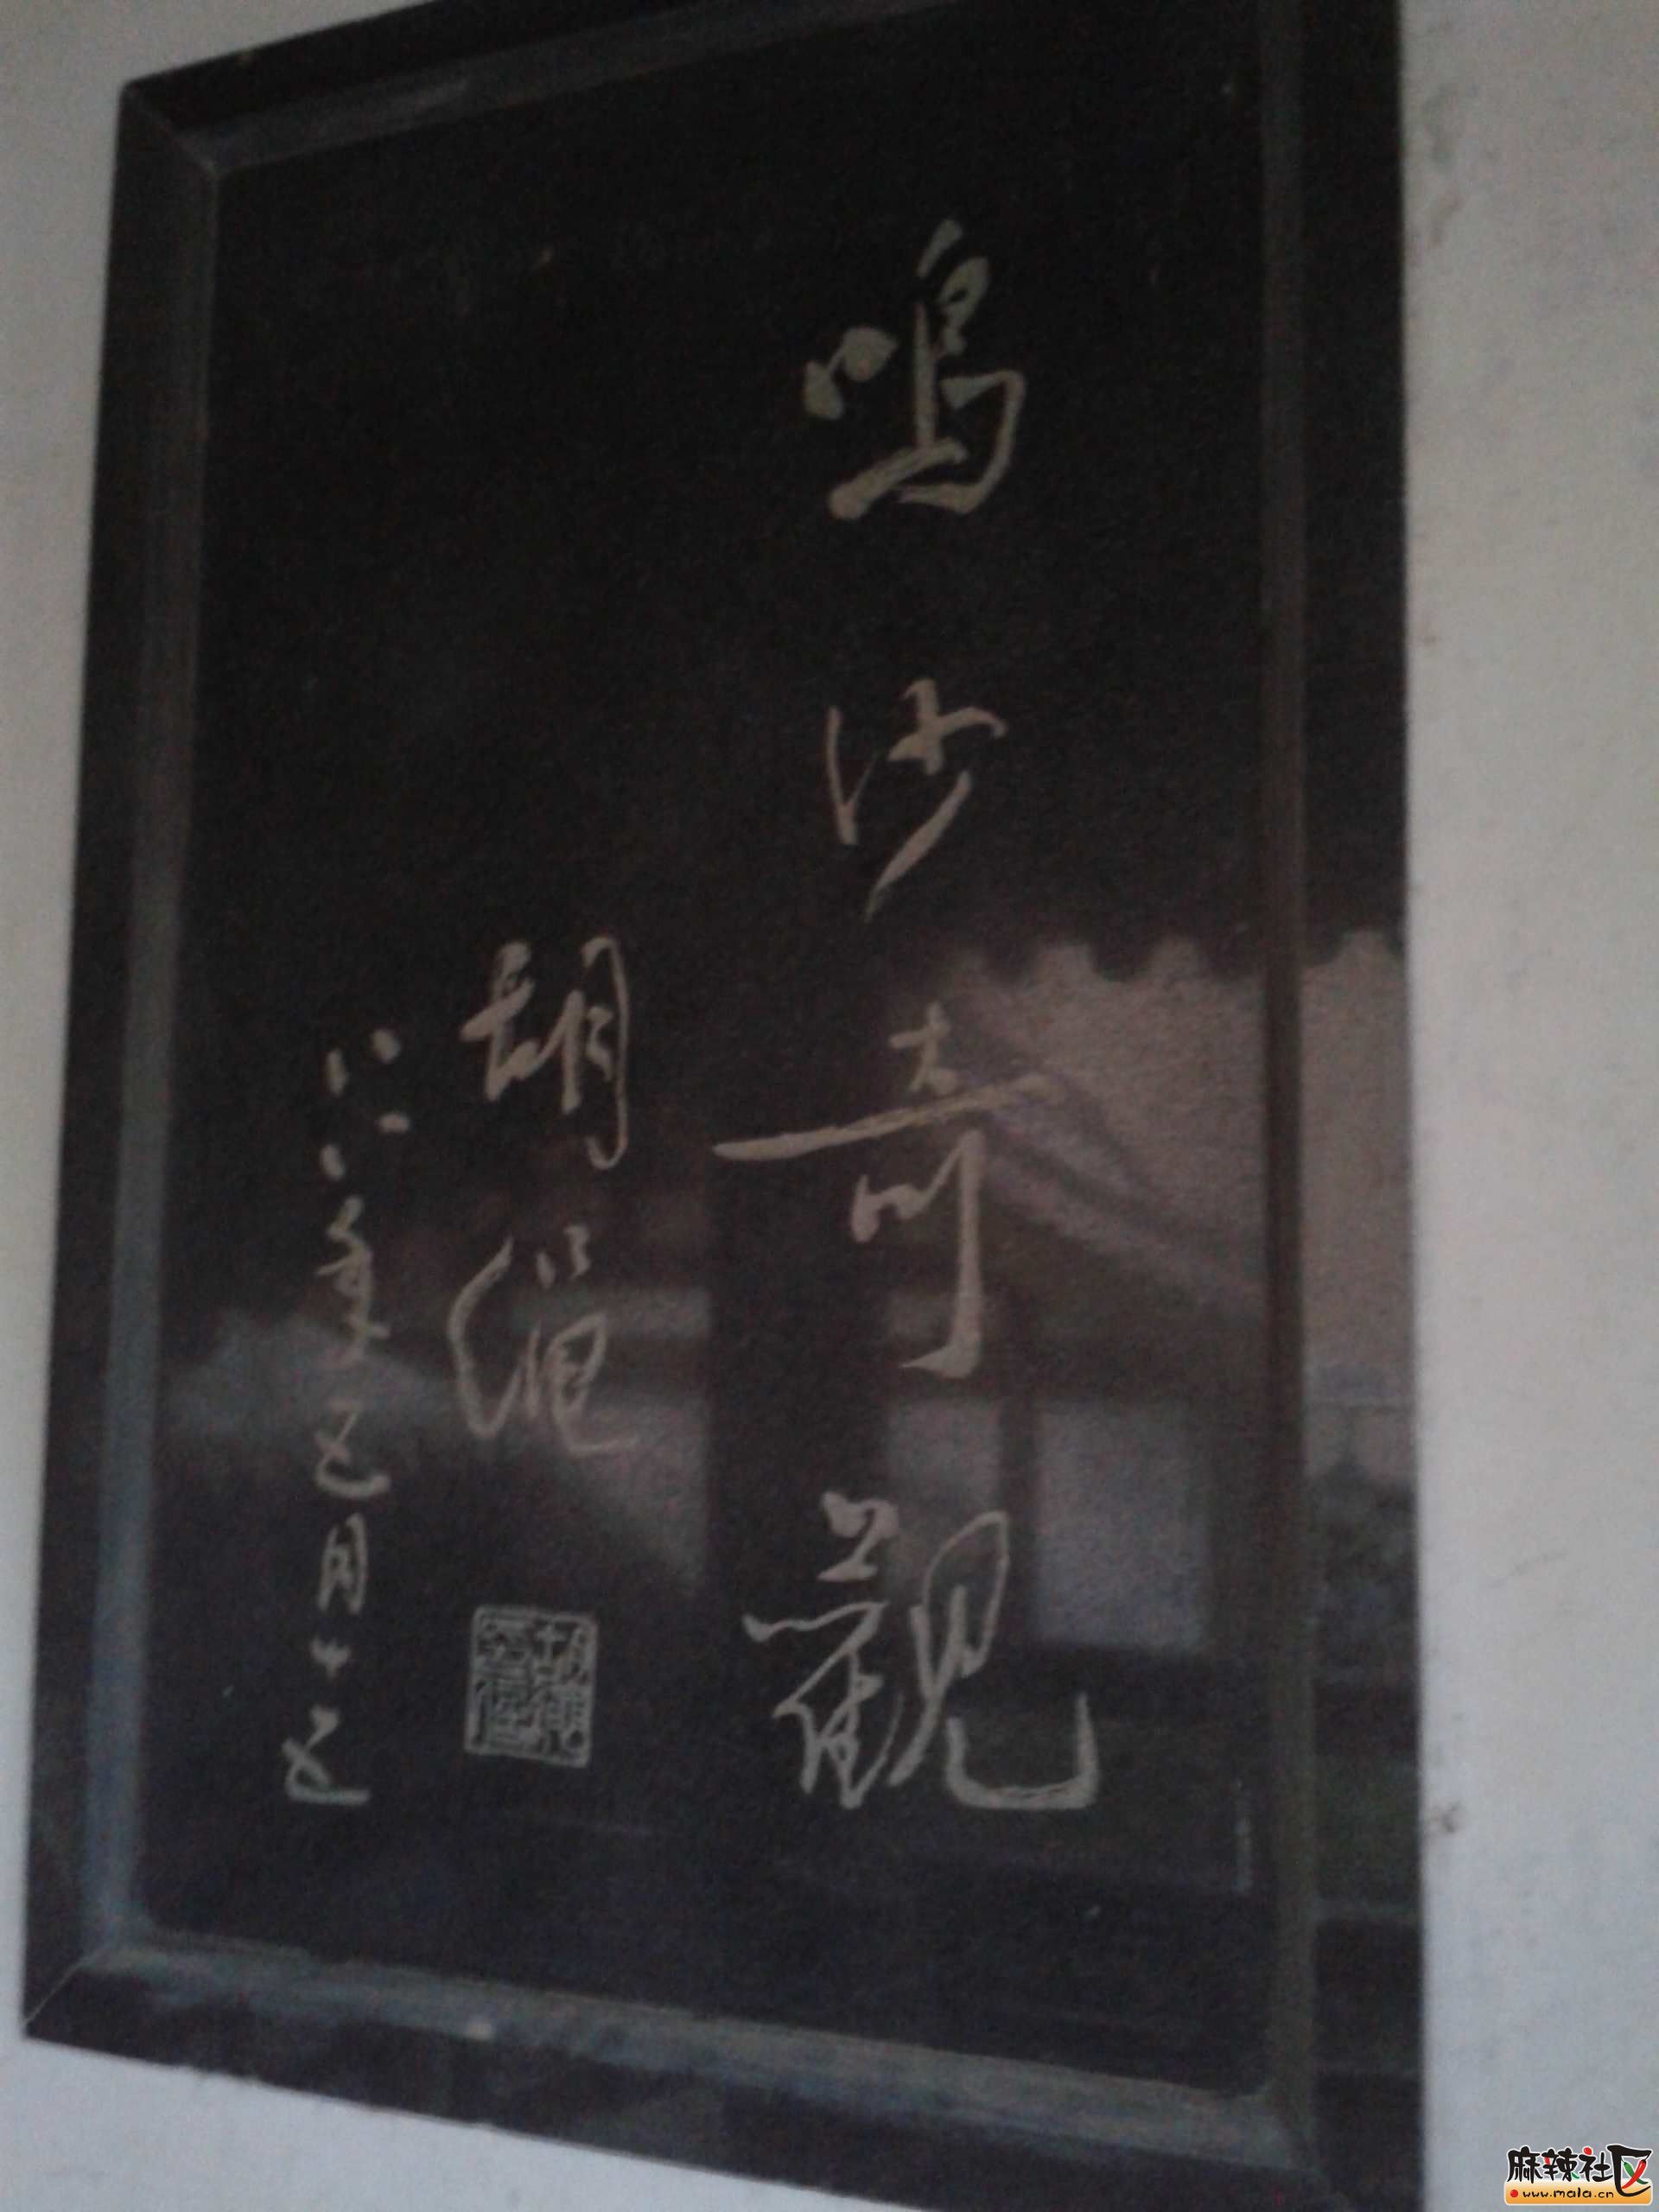 鳴沙奇觀
胡繩
八八年五月廿五
麻辣社区
www.mala.cn